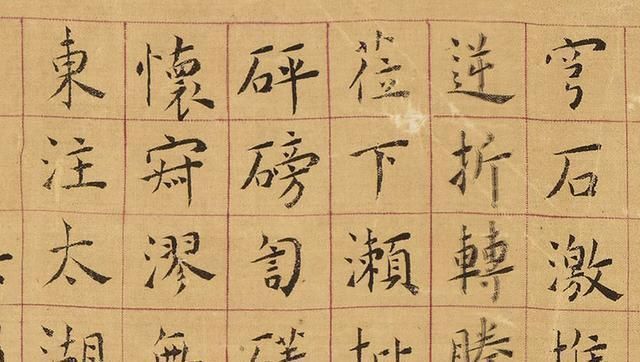 穹石激
逆折轉騰
蒞下瀨
砰磅訇
懷寂漻無
東注太湖